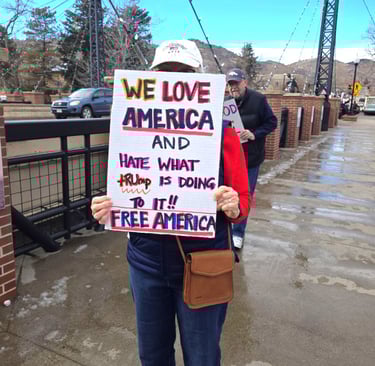 WE LOVE
AMERICA
AND
HATE WHAT
TRUmp IS DOING
TO IT!!
FREE AMERICA
OD